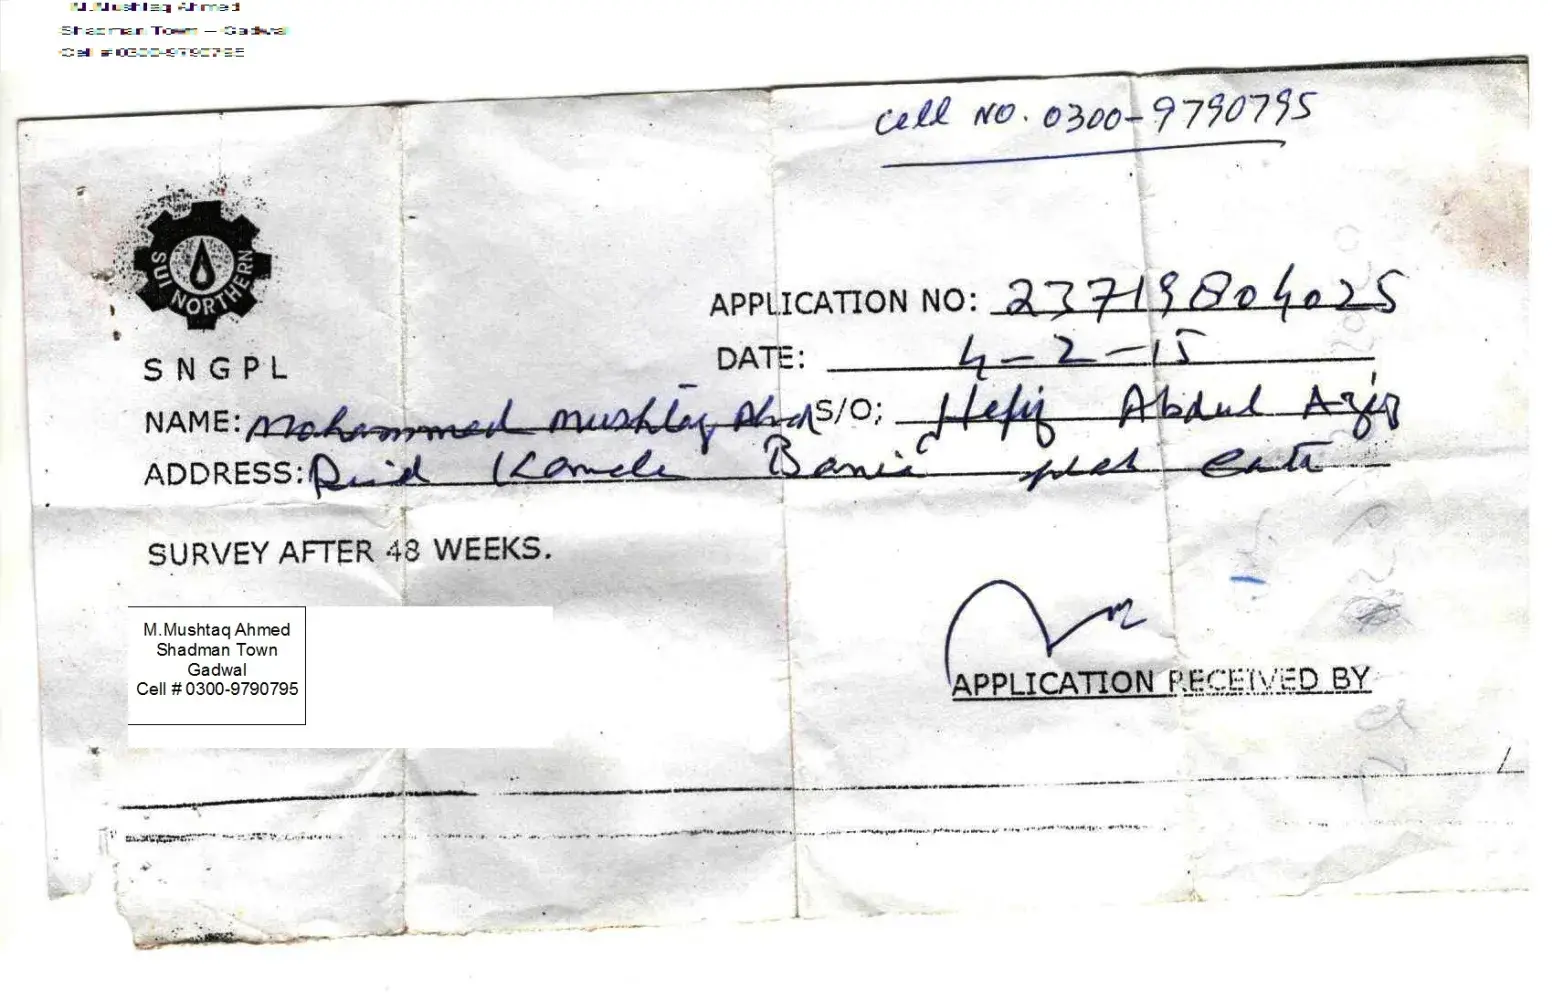 M.Mushtaq Ahmed
Shadman Town – Gadwal
Cell # 0300-9790795
Cell NO. 0300-9790795
SUI NORTHERN
APPLICATION NO: 23719804025
S N G P L
DATE: 4-2-15
NAME: Mohammed Mushtaq Ahmd S/O; Hefiz Abdul Aziz
ADDRESS:
SURVEY AFTER 48 WEEKS.
M.Mushtaq Ahmed
Shadman Town
Gadwal
Cell # 0300-9790795
APPLICATION RECEIVED BY